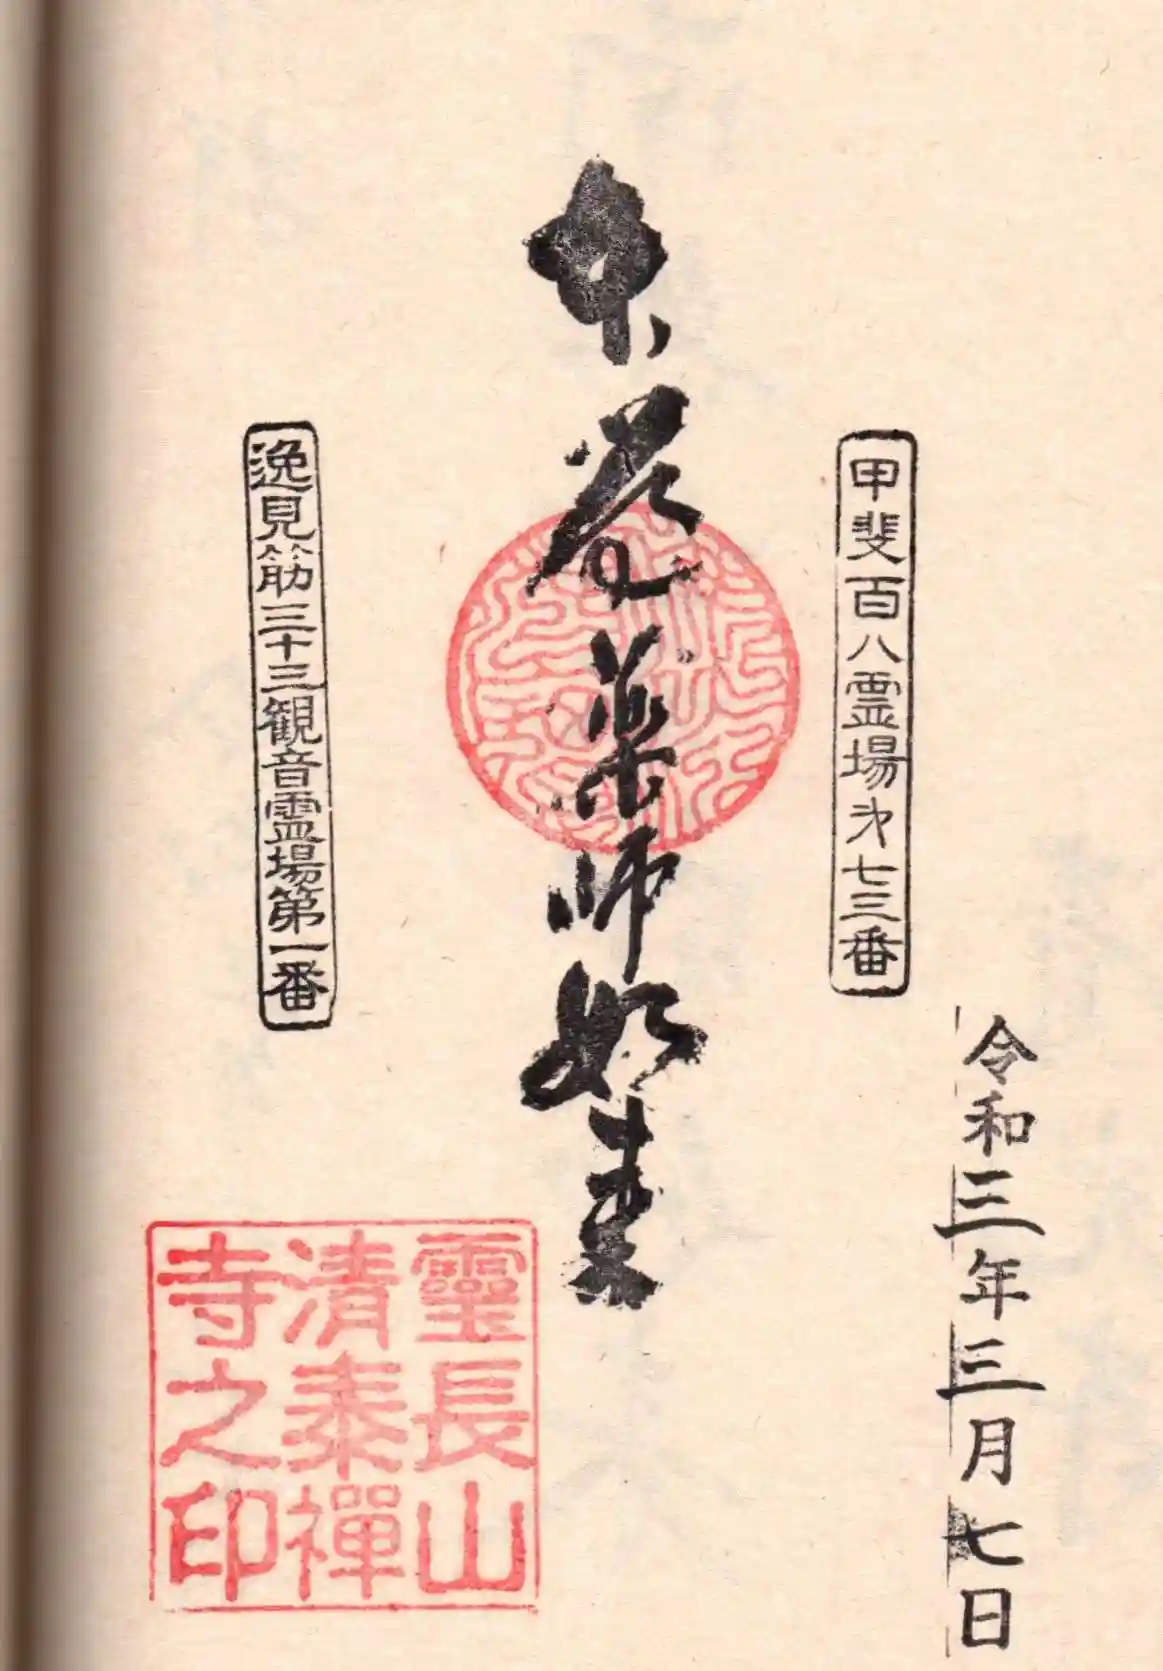 令和三年三月七日
甲斐百八霊場㐧七三番
本尊薬師如来
逸見筋三十三観音霊場第一番
靈長山
清泰禪
寺之印